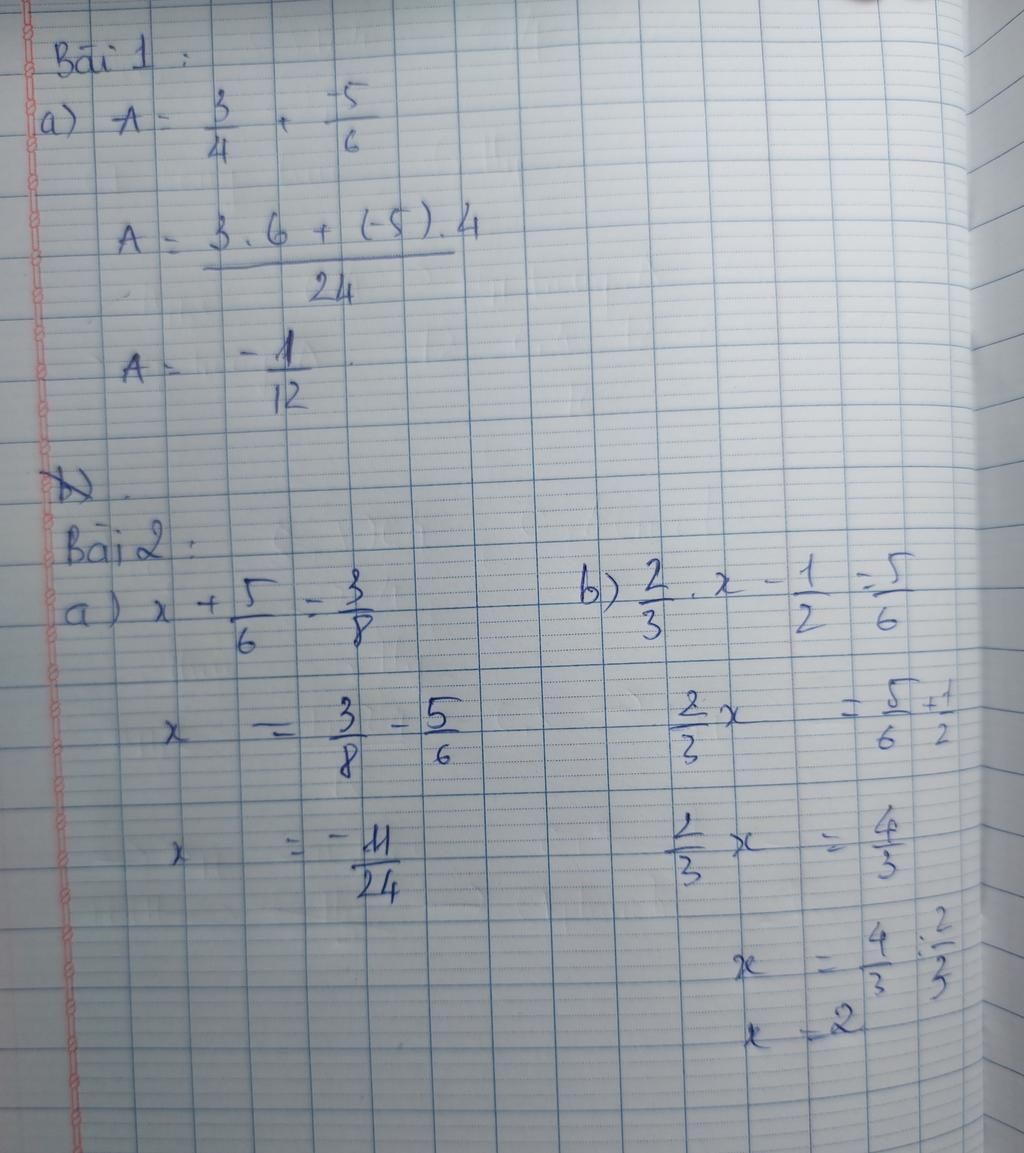 Bài 1 :
a) A = 3/4 + -5/6
A = (3 . 6 + (-5) . 4)/24
A = -1/12
b)
Bài 2 :
a) x + 5/6 = 3/8
x = 3/8 - 5/6
x = -11/24
b) 2/3 . x - 1/2 = 5/6
2/3 x = 5/6 + 1/2
2/3 x = 4/3
x = 4/3 : 2/3
x = 2